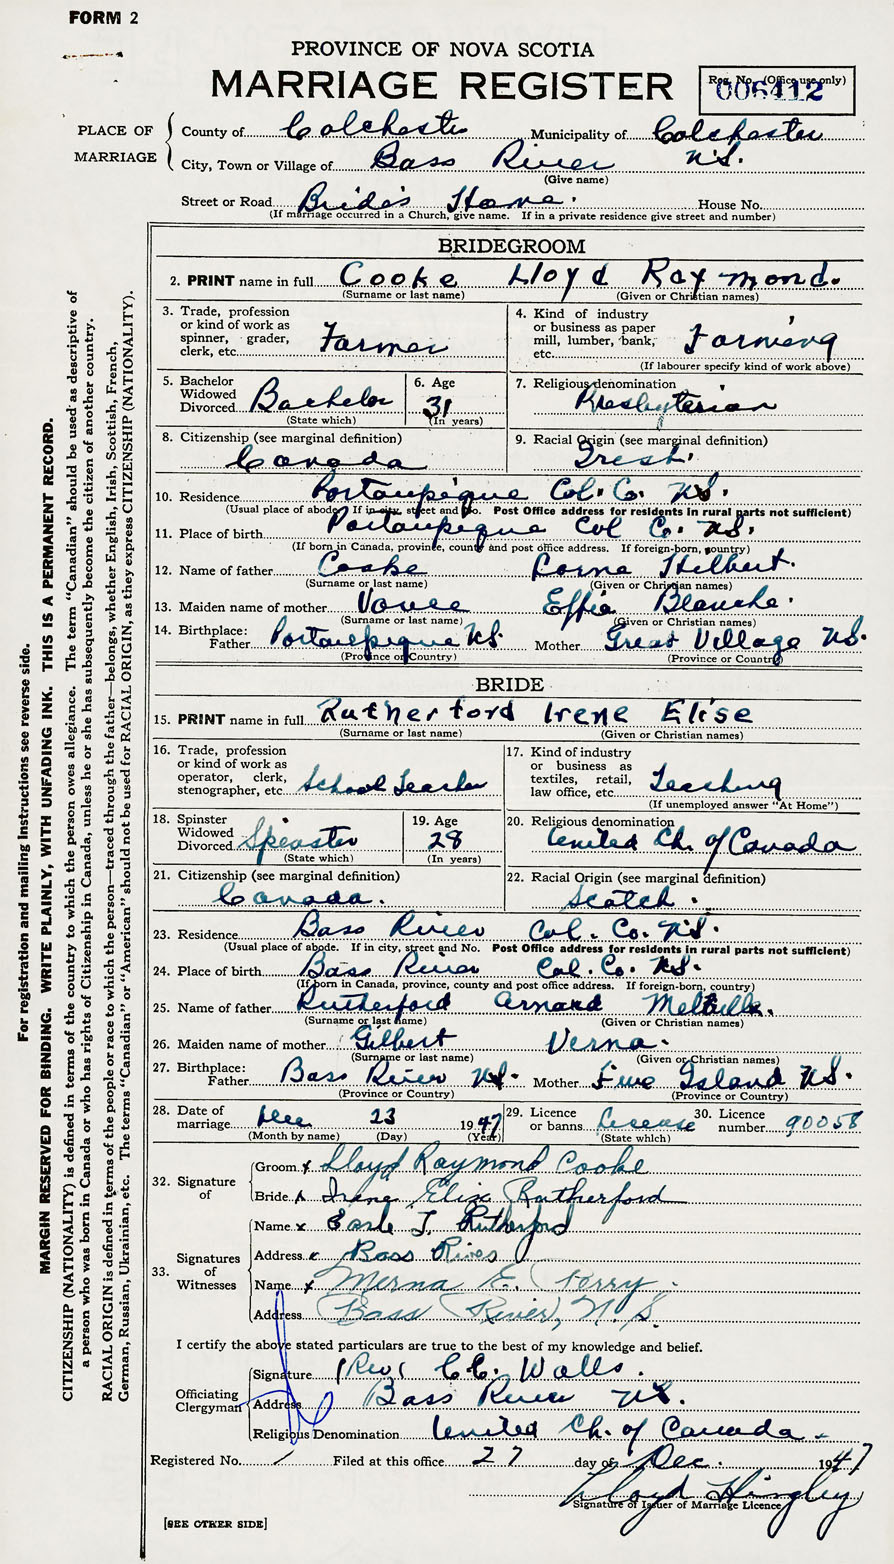 FORM 2
PROVINCE OF NOVA SCOTIA
MARRIAGE REGISTER
Reg. No. (Office use only)
006412
PLACE OF MARRIAGE
County of Colchester Municipality of Colchester
City, Town or Village of Bass River N.S.
(Give name)
Street or Road Bride's Home. House No.
(If marriage occurred in a Church, give name. If in a private residence give street and number)
BRIDEGROOM
2. PRINT name in full Cooke Lloyd Raymond.
(Surname or last name) (Given or Christian names)
3. Trade, profession or kind of work as spinner, grader, clerk, etc. Farmer
4. Kind of industry or business as paper mill, lumber, bank, etc. Farming
(If labourer specify kind of work above)
5. Bachelor Widowed Divorced Bachelor
(State which)
6. Age 31
(In years)
7. Religious denomination Presbyterian
8. Citizenship (see marginal definition)
Canada
9. Racial Origin (see marginal definition)
Irish.
10. Residence Portaupique Col. Co. N.S.
(Usual place of abode. If in city, street and No. Post Office address for residents in rural parts not sufficient)
11. Place of birth Portaupique Col Co. N.S.
(If born in Canada, province, county and post office address. If foreign-born, country)
12. Name of father Cooke Lorne Hilbert.
(Surname or last name) (Given or Christian names)
13. Maiden name of mother Effie Blanche.
(Surname or last name) (Given or Christian names)
14. Birthplace: Father Portaupique N.S. Mother Great Village N.S.
(Province or Country) (Province or Country)
BRIDE
15. PRINT name in full Rutherford Irene Elise
(Surname or last name) (Given or Christian names)
16. Trade, profession or kind of work as operator, clerk, stenographer, etc. School Teacher
17. Kind of industry or business as textiles, retail, law office, etc. Teaching
(If unemployed answer "At Home")
18. Spinster Widowed Divorced Spinster
(State which)
19. Age 28
(In years)
20. Religious denomination
United Ch. of Canada
21. Citizenship (see marginal definition)
Canada.
22. Racial Origin (see marginal definition)
Scotch.
23. Residence Bass River Col. Co. N.S.
(Usual place of abode. If in city, street and No. Post Office address for residents in rural parts not sufficient)
24. Place of birth Bass River Col. Co. N.S.
(If born in Canada, province, county and post office address. If foreign-born, country)
25. Name of father Rutherford Armand Melville.
(Surname or last name) (Given or Christian names)
26. Maiden name of mother Gilbert Verna.
(Surname or last name) (Given or Christian names)
27. Birthplace: Father Bass River N.S. Mother Five Island N.S.
(Province or Country) (Province or Country)
28. Date of marriage Dec 23 1947
(Month by name) (Day) (Year)
29. Licence or banns License
(State which)
30. Licence number 90058
32. Signature of
Groom x Lloyd Raymond Cooke
Bride x Irene Elise Rutherford
33. Signatures of Witnesses
Name x Earle T. Rutherford
Address x Bass River
Name x Merna E. Forry.
Address Bass River, N.S.
I certify the above stated particulars are true to the best of my knowledge and belief.
Officiating Clergyman
Signature (Rev) C.C. Walls.
Address Bass River N.S.
Religious Denomination United Ch. of Canada.
Registered No. 1 Filed at this office 27 day of Dec. 1947
Lloyd Hingley
Signature of Issuer of Marriage Licence
[SEE OTHER SIDE]
For registration and mailing instructions see reverse side.
MARGIN RESERVED FOR BINDING. WRITE PLAINLY, WITH UNFADING INK. THIS IS A PERMANENT RECORD.
CITIZENSHIP (NATIONALITY) is defined in terms of the country to which the person owes allegiance. The term "Canadian" should be used as descriptive of
a person who was born in Canada or who has rights of Citizenship in Canada, unless he or she has subsequently become the citizen of another country.
RACIAL ORIGIN is defined in terms of the people or race to which the person—traced through the father—belongs, whether English, Irish, Scottish, French,
German, Russian, Ukrainian, etc. The terms "Canadian" or "American" should not be used for RACIAL ORIGIN, as they express CITIZENSHIP (NATIONALITY).